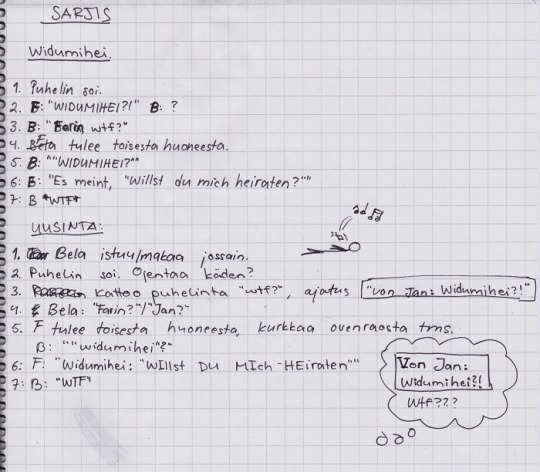 SARJIS
Widumihei.
1. Puhelin soi.
2. F: "WIDUMIHEI?!" B: ?
3. B: "Farin wtf?"
4. Bela tulee toisesta huoneesta.
5. B: ""WIDUMIHEI?""
6: F: "Es meint, "Willst du mich heiraten?""
7: B "WTF"
UUSINTA:
1. Bela istuu/makaa jossain.
2. Puhelin soi. Ojentaa käden?
3. Kattoo puhelinta "wtf?", ajatus "Von Jan: Widumihei?!"
4. Bela: "Farin?"/"Jan?"
5. F tulee toisesta huoneesta, kurkkaa ovenraosta tms.
B: ""widumihei"?"
6: F: "Widumihei: "WIllst DU MIch HEiraten""
7: B: "WTF"
Von Jan:
Widumihei?!
Wtf???